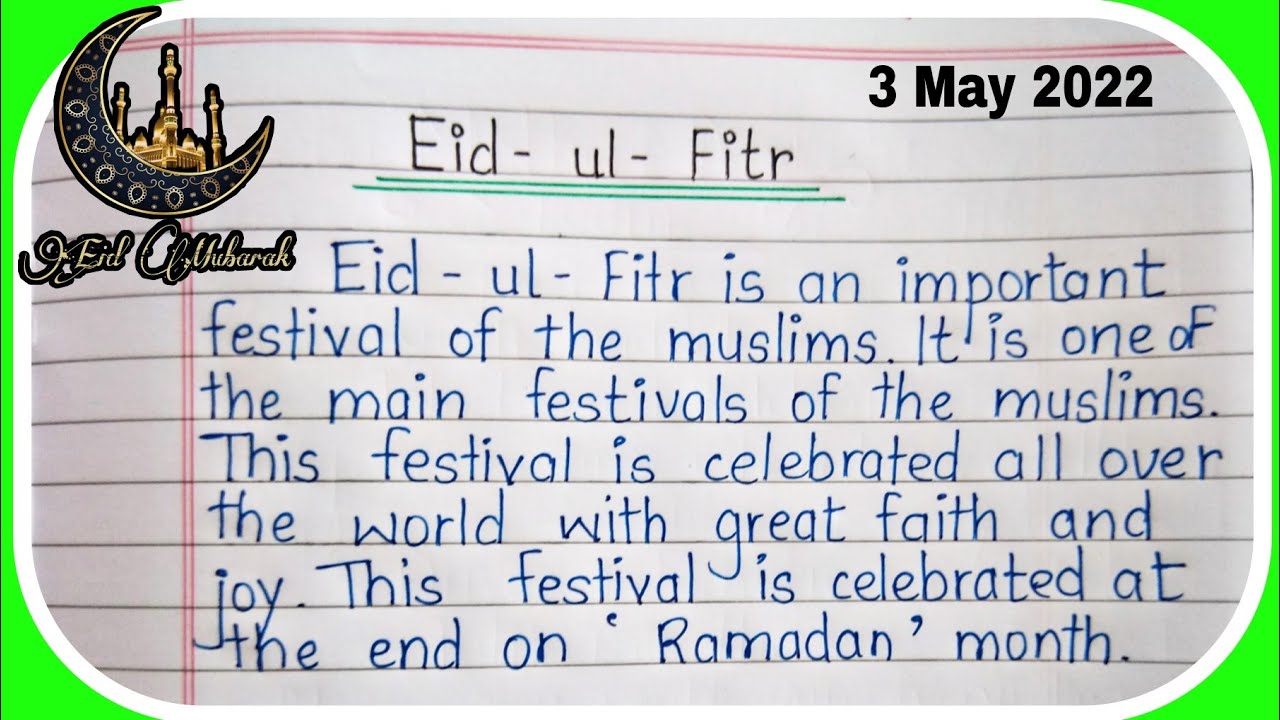 3 May 2022
Eid - ul - Fitr
Eid Mubarak
Eid - ul - Fitr is an important
festival of the muslims. It is one of
the main festivals of the muslims.
This festival is celebrated all over
the world with great faith and
joy. This festival is celebrated at
the end on ‘Ramadan’ month.